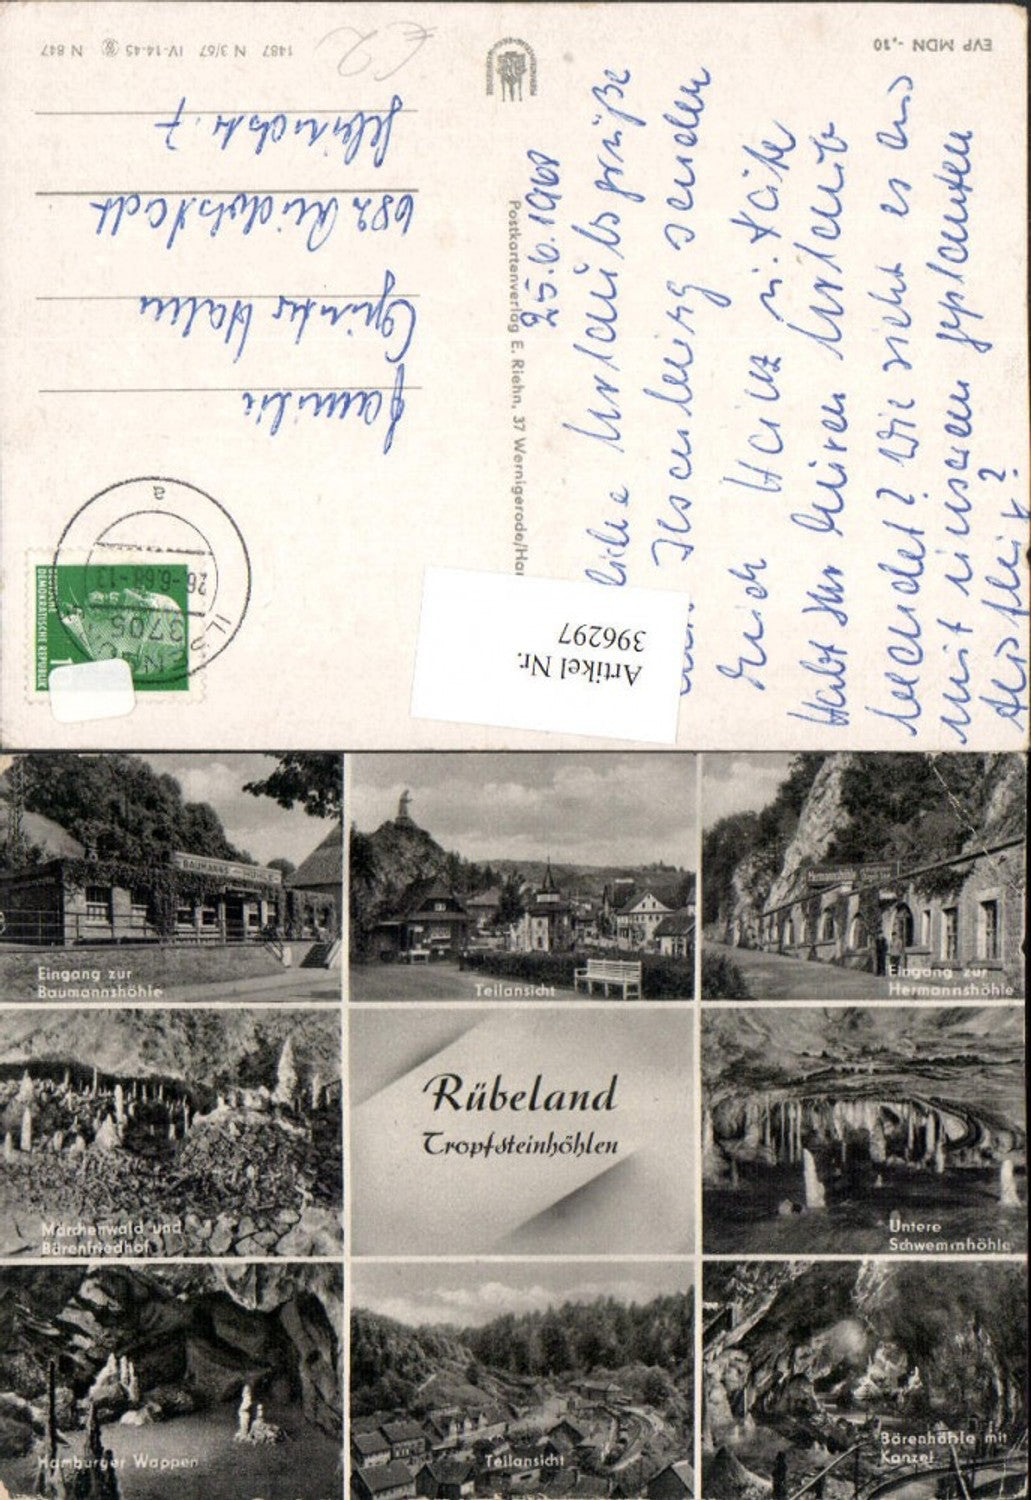 EVP MDN -,10
1487 N 3/67 IV-14-45 N 847
Postkartenverlag E. Riehn, 37 Wernigerode/Har
25.6.1968
liche Urlaubsgrüße
Ilsenburg senden
Euch Heinz u. Käte
Habt Ihr Euren Urlaub
beendet? Wie sieht es aus
mit unserem geplanten
Familie
Günter
682 Rudolstadt
7
DEUTSCHE
DEMOKRATISCHE REPUBLIK
1
26.-6.68-13
3705
a
Artikel Nr.
396297
€2
BAUMANNS
Eingang zur
Baumannshöhle
Teilansicht
Hermannshöhle
Eingang zur
Hermannshöhle
Märchenwald und
Bärenfriedhof
Rübeland
Tropfsteinhöhlen
Untere
Schwemmhöhle
Hamburger Wappen
Teilansicht
Bärenhöhle mit
Kanzel